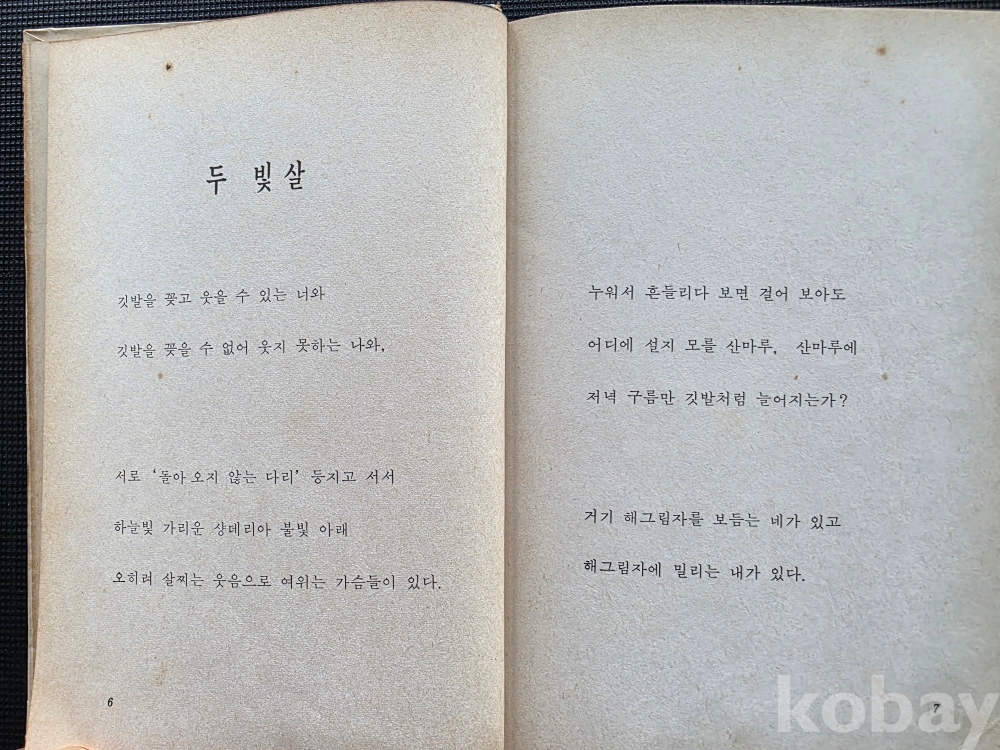 두 빛살
깃발을 꽂고 웃을 수 있는 너와
깃발을 꽂을 수 없어 웃지 못하는 나와,
서로 '돌아오지 않는 다리' 등지고 서서
하늘빛 가리운 샹데리아 불빛 아래
오히려 살찌는 웃음으로 여위는 가슴들이 있다.
6
누워서 흔들리다 보면 걸어 보아도
어디에 설지 모를 산마루, 산마루에
저녁 구름만 깃발처럼 늘어지는가?
거기 해그림자를 보듬는 네가 있고
해그림자에 밀리는 내가 있다.
7
kobay